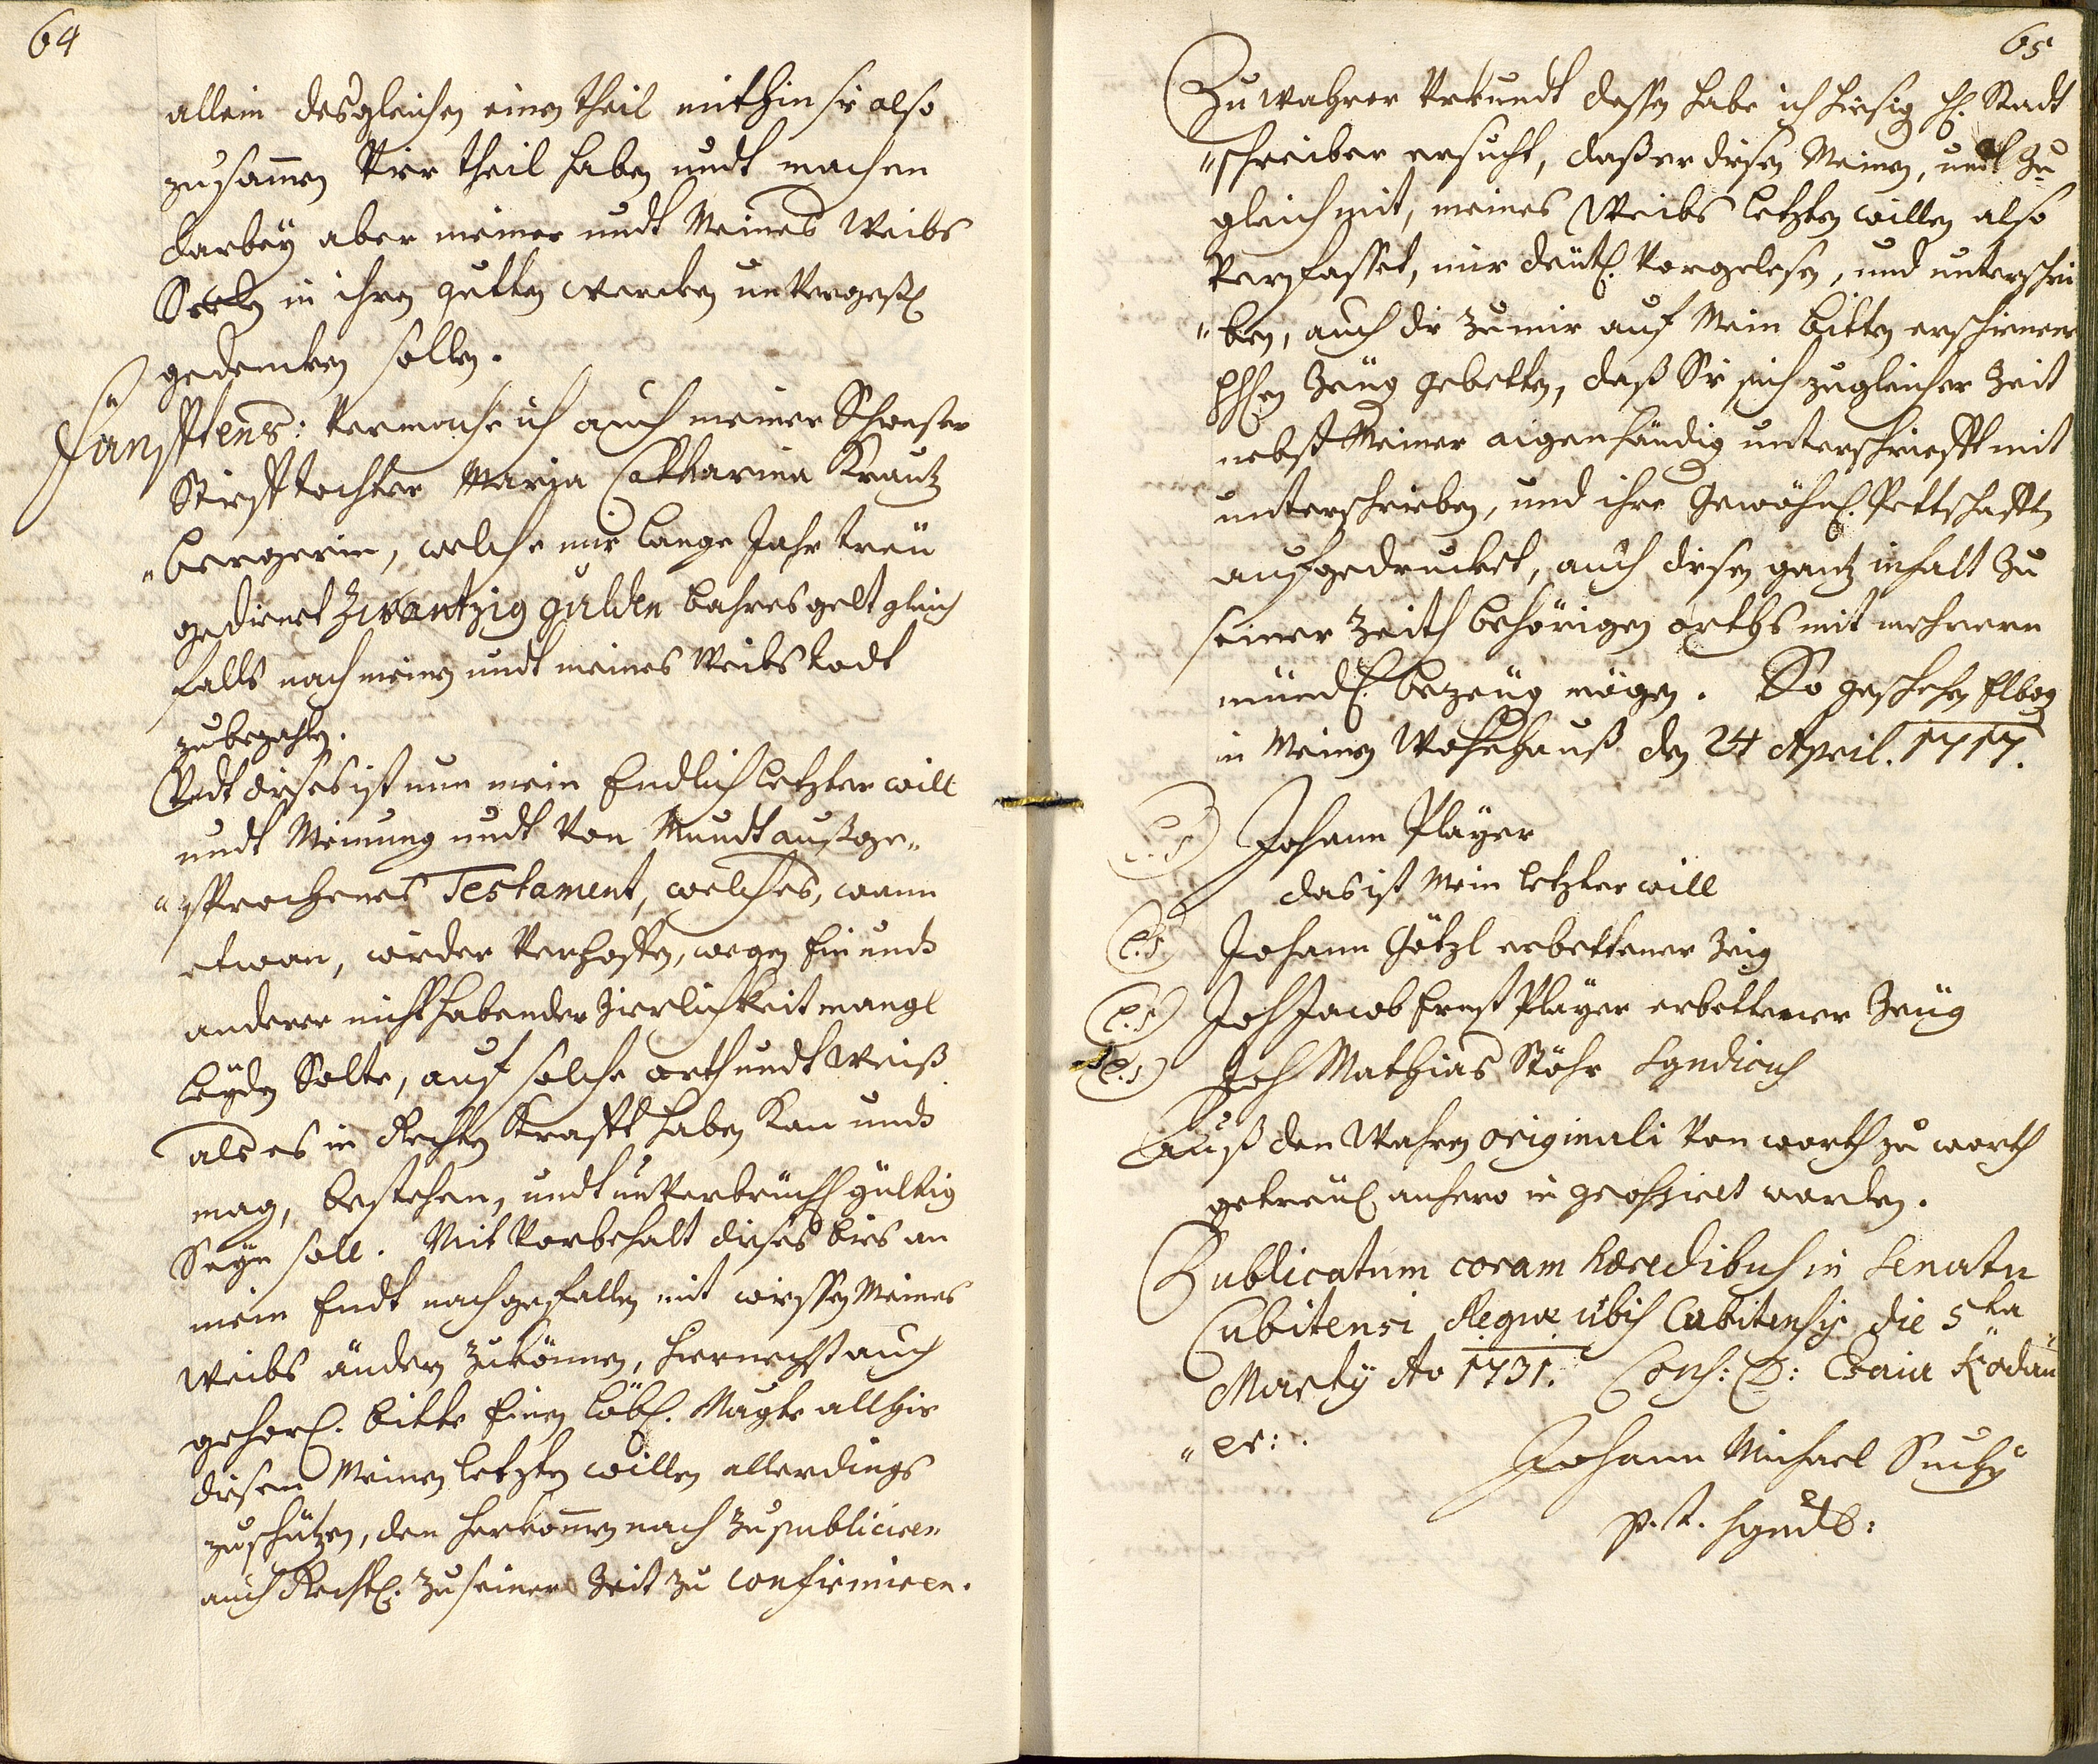 64
allein desgleichen einen theil mithin sie also
zusamen Vier theil haben undt machen
darbey aber meiner undt Meines Weibs
Seelen in ihren gutten wercken unvergeßl.
gedencken sollen.
Fünfftens: Vermache ich auch meiner Schwester
Stiefftochter Maria Catharina Krantz
"bergerin, welche mir lange Jahr treü
gedienet Zwantzig gulden bahres gelt gleich
falls nach meinen undt meines Weibs todt
zubezahlen.
Undt dieses ist nun mein Endlich letzter will
undt Meinung undt von Mundt außge"
"sprochenes Testament, welches, wann
etwan, wieder verhoffen, wegen ein undt
anderer nicht habender Zierlichkeit mangl
leyden Solte, auf solche arth undt weiß
als es in Rechten Krafft haben kan undt
mag, bestehen, undt unverbrüchl gültig
Seyn soll. Mit vorbehalt dieses bies an
mein Endt nach gefallen mit wiessen Meines
Weibs ändern zukönnen, hiernechst auch
gehorl. bitte Einen löbl. Magte allhie
diesem Meinen letzten willen allerdings
zuschützen, den herkomen nach zu publiciren
auch Rechtl. zu seiner Zeit zu confirmiren.
65
Zu wahrer Urkundt dessen habe ich hiesig H. Stadt
"schreiber ersucht, daß er diesen Meinen, undt zu
gleich mit, meines Weibs letzten willen also
verfasset, mir deütl. vorgelesen, und unterschrie
"ben, auch die zu mir auf Mein bitten erschienene
HHen Zeüg gebetten, daß Sie sich zugleicher Zeit
nebst Meiner aigenhändig unterschriefft mit
unterschrieben, und ihre gewöhnl. Pettschafften
aufgedrucket, auch diesen gantz inhalt zu
seiner Zeith behörigen orths mit mehrern
mündl. bezeüg mögen. So geschehen Elbog
in Meinen Wohnhauß den 24 April. 1717.
(L.S) Johann Player
das ist Mein letzter will
(L.S) Johann Götzl erbettener Zeig
(L.S) Joh Jacob Ernst Player erbettener Zeüg
(L.S) Joh Mathias Stöhr Syndicus
Auß den Wahren originali von worth zu worth
getreül anhero in worden.
Publicatum coram hæredibus in Senatu
Cubitensi Regiæ urbis Cubitensis die 5ta
Martÿ Ao 1731. Cons: D: Esaia Ködau
"er:.
Johann Michael Suchÿ
p.t. Synd: